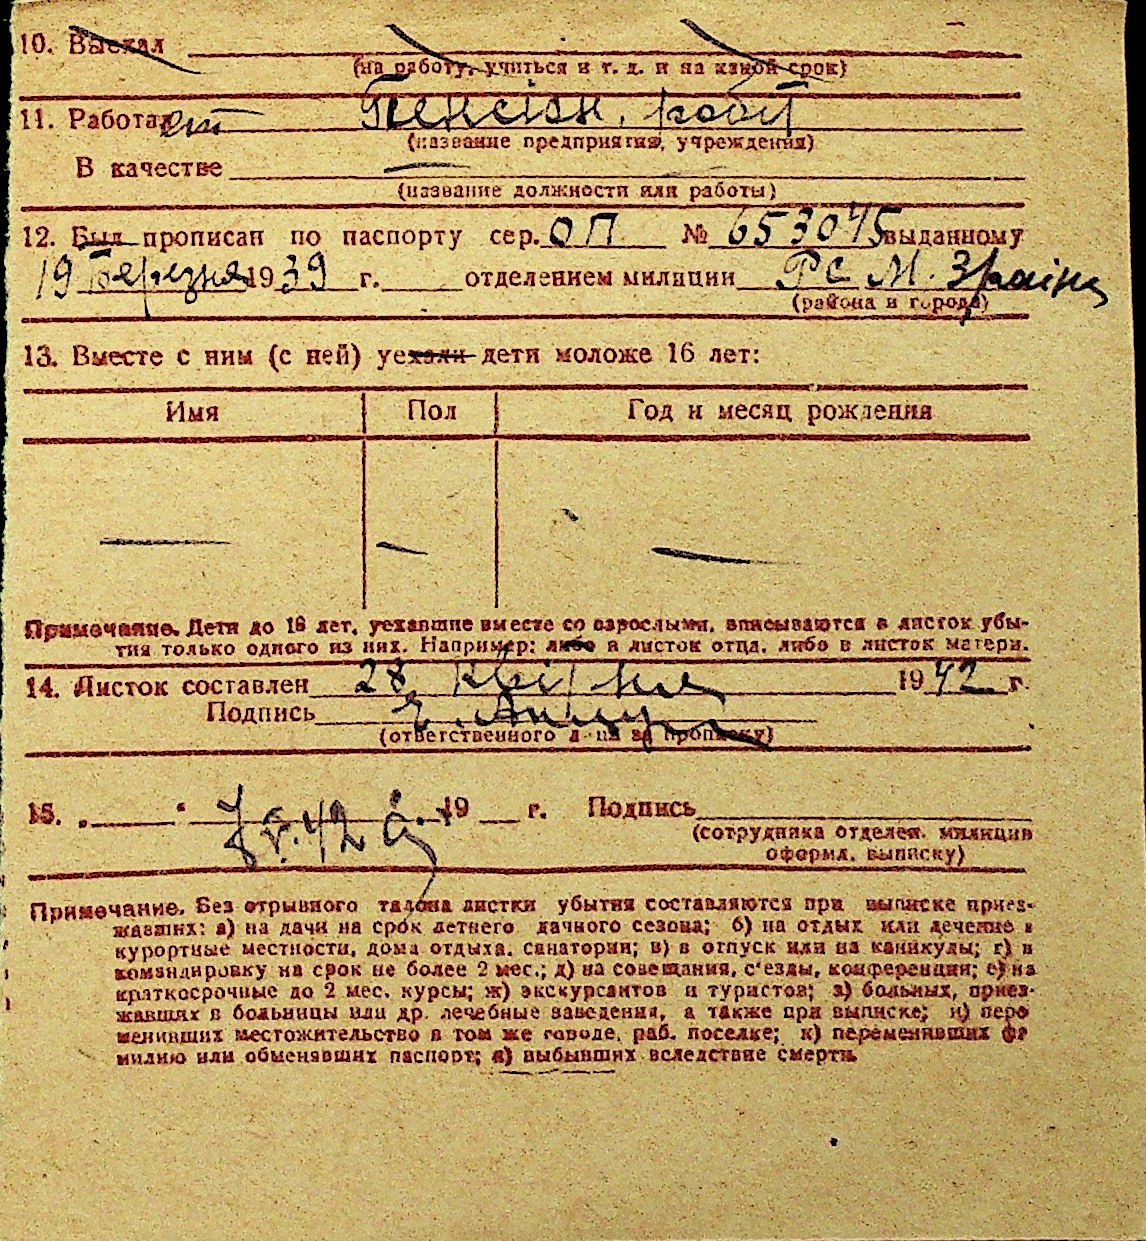 10. Выехал
(на работу, учиться и т. д. и на какой срок)
11. Работает Пенсіон. робіт
(название предприятия, учреждения)
В качестве —
(название должности или работы)
12. Был прописан по паспорту сер. ОП № 653045 выданному
19 Березня 1939 г. отделением милиции РС М.
(района и города)
13. Вместе с ним (с ней) уехали дети моложе 16 лет:
Имя Пол Год и месяц рождения
— — —
Примечание. Дети до 16 лет, уехавшие вместе со взрослыми, вписываются в листок убы-
тия только одного из них. Например: либо в листок отца, либо в листок матери.
14. Листок составлен 28 квітня 1942 г.
Подпись
(ответственного л-ца за прописку)
15. „ “ 7 V. 42 19 г. Подпись
(сотрудника отделен. милиции
оформл. выписку)
Примечание. Без отрывного талона листки убытия составляются при выписке приез-
жавших: а) на дачи на срок летнего дачного сезона; б) на отдых или лечение в
курортные местности, дома отдыха, санатории; в) в отпуск или на каникулы; г) в
командировку на срок не более 2 мес.; д) на совещания, с'езды, конференции; е) на
краткосрочные до 2 мес. курсы; ж) экскурсантов и туристов; з) больных, приез-
жавших в больницы или др. лечебные заведения, а также при выписке; и) пере
менивших местожительство в том же городе, раб. поселке; к) переменивших фа
милию или обменявших паспорт; л) выбывших вследствие смерти.